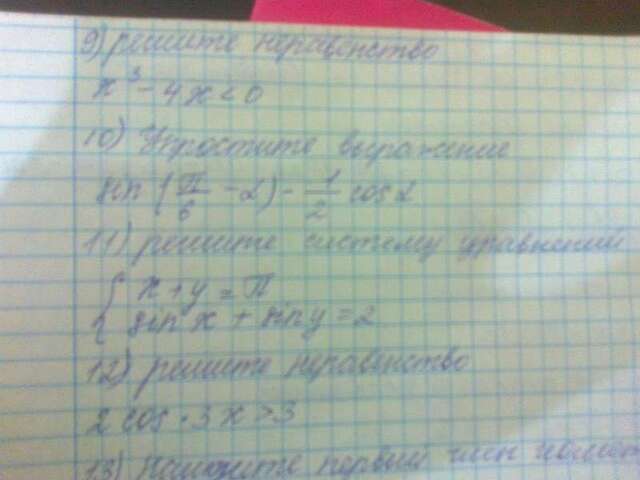 9) решите неравенство
x³ - 4x < 0
10) Упростите выражение
sin (π/6 - α) - 1/2 cos α
11) решите систему уравнений
{ x + y = π
sin x + sin y = 2
12) решите неравенство
2 cos · 3x > 3
13) первый член